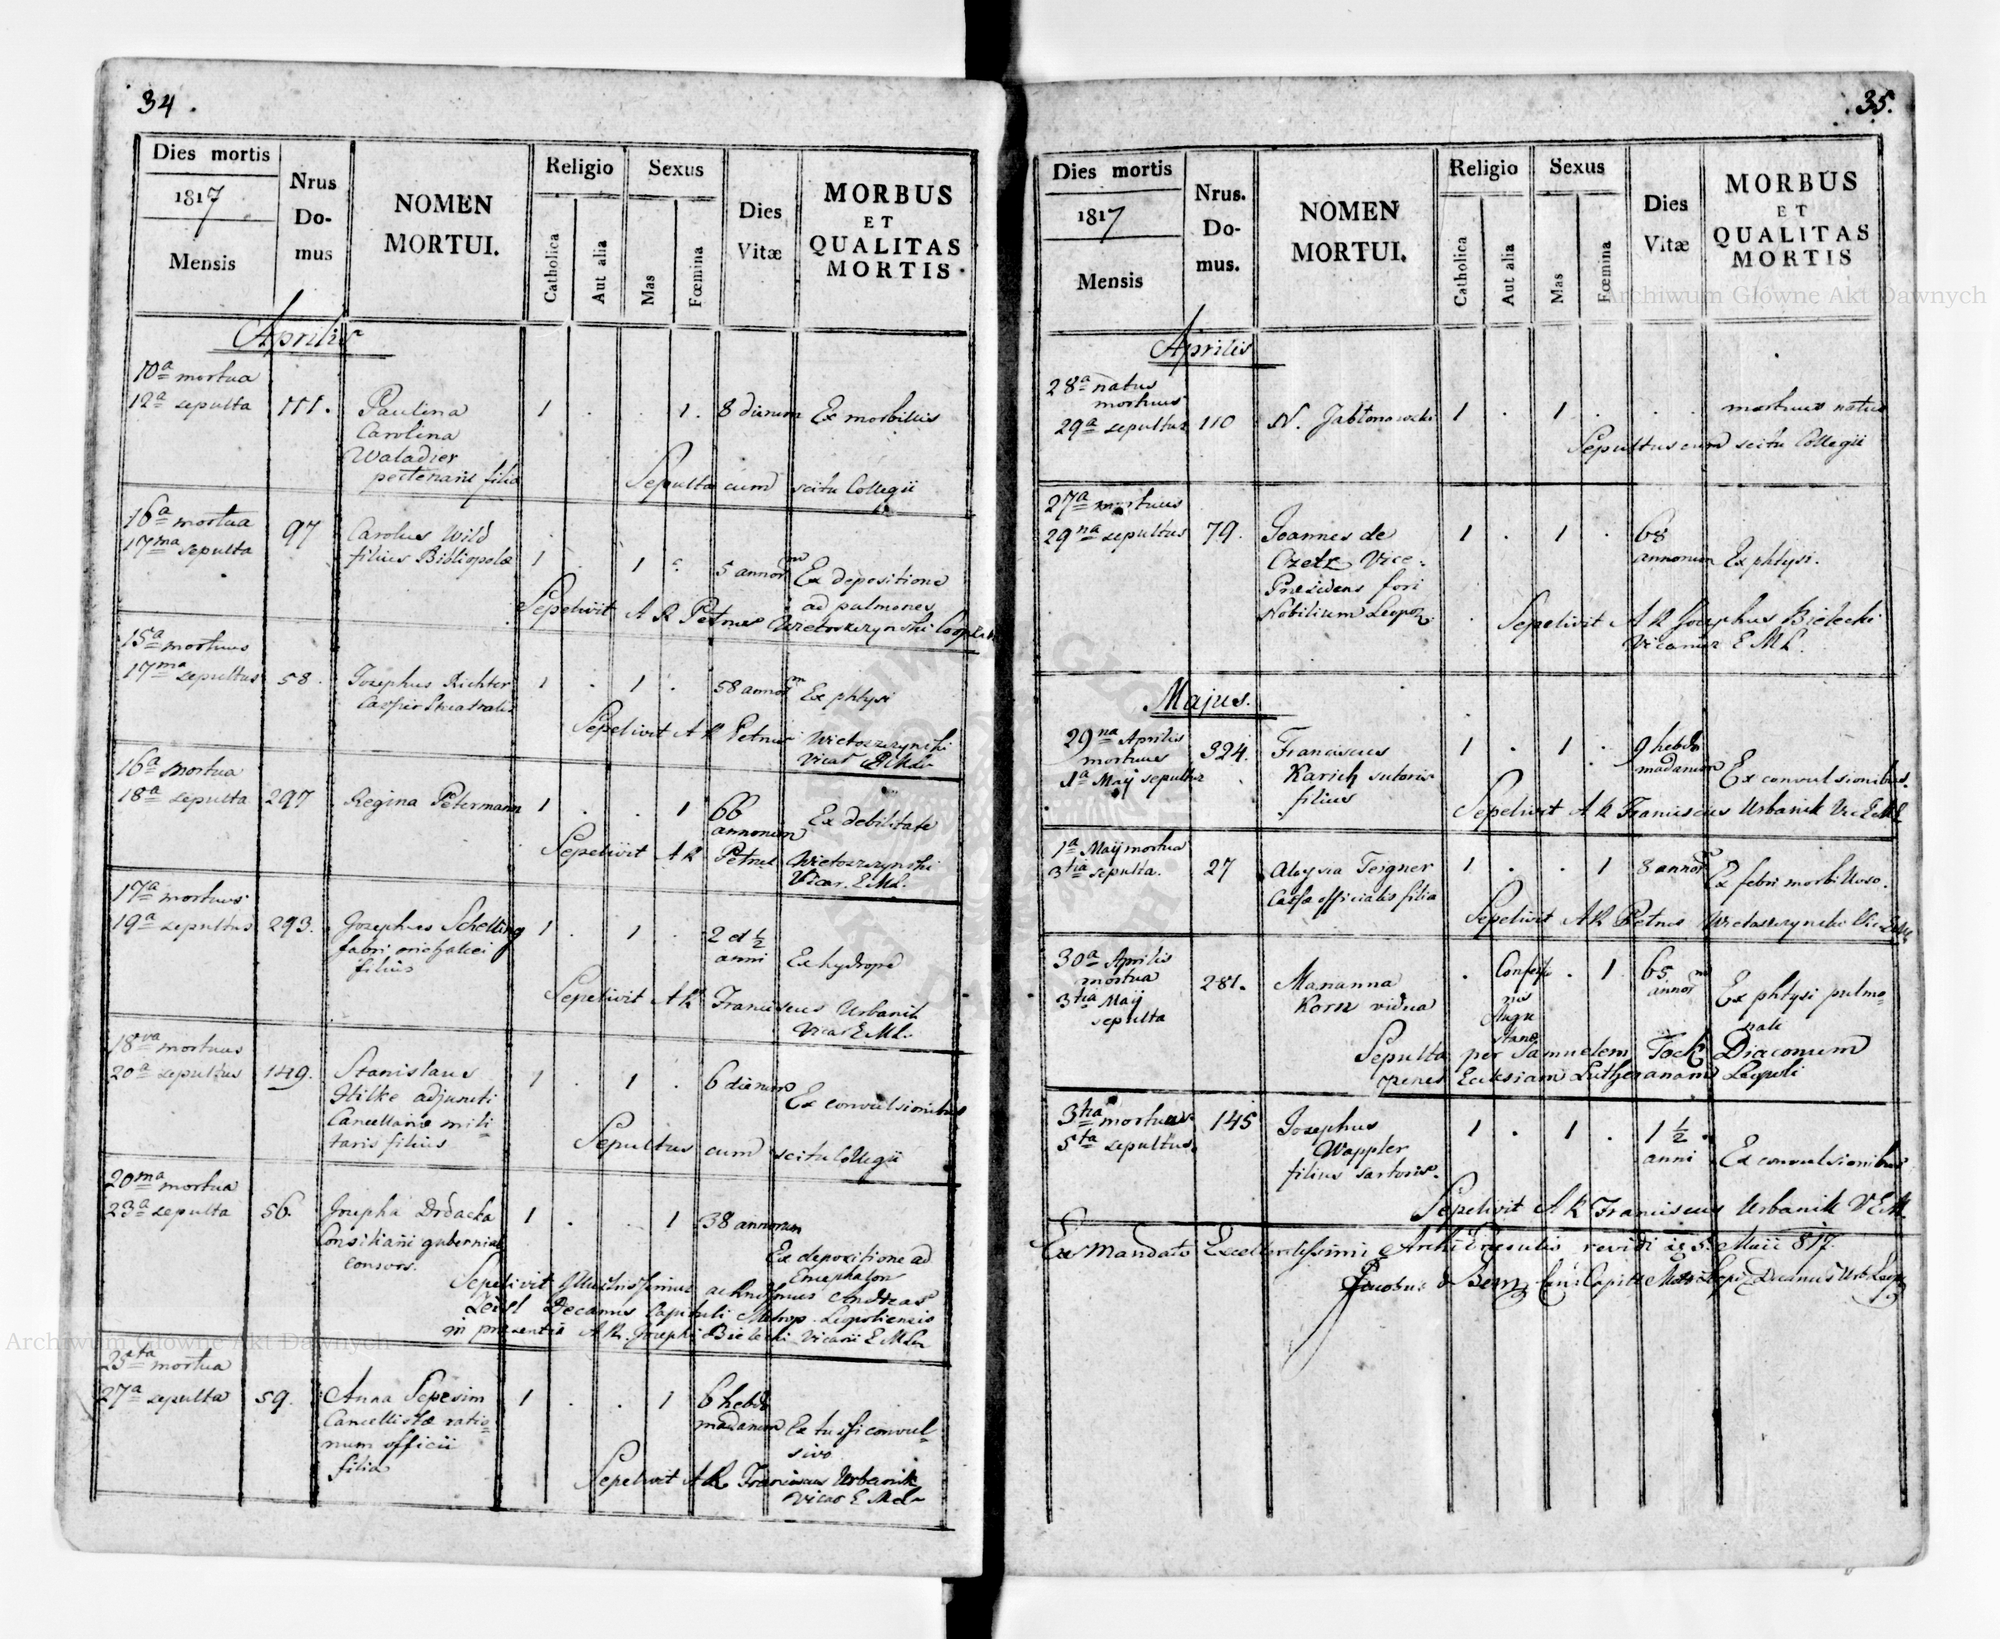 34.
Dies mortis
1817
Mensis
Nrus
Do-
mus
NOMEN
MORTUI.
Religio
Catholica
Aut alia
Sexus
Mas
Fœmina
Dies
Vitæ
MORBUS
ET
QUALITAS
MORTIS
Aprilis
10a mortua
12a sepulta 111. Paulina 1 . . 1. 8 dierum Ex morbillis
Carolina
Waladier
filia
Sepulta cum scitu Collegii
16a mortua
17ma sepulta 97 Carolus Wild
filius Bibliopolæ 1 . 1 5 annorm Ex depositione
ad pulmones
Sepelivit A R Petrus Wietoszzynski
15a mortuus
17ma sepultus 58. Josephus Richter 1 . 1 . 58 annorm Ex phtysi
Sepelivit A R Petrus Wietoszzynski
16a mortua
18a sepulta 297 Regina Petermann 1 . . 1 66
annorum Ex debilitate
Sepelivit A R Petrus Wietoszzynski
Vicar. E.M.L.
17a mortuus
19a sepultus 293. Josephus Schelling 1 . 1 . 2 et ½
anni Ex hydrope
fabri
filius
Sepelivit A R Franciscus Urbanik
Vicar E.M.L.
18va mortuus
20a sepultus 149. Stanislaus 1 . 1 . 6 dierum
Hilke adjuncti Ex convulsionibus
Cancellariæ mili-
taris filius
Sepultus cum scitu Collegii
20ma mortua
23a sepulta 56. Josepha Drdacka 1 . . 1 38 annorum
Consiliarii gubernial
consors. Ex depositione ad
Encephalon
Sepelivit Illustrissimus ac Rndsimus Andreas
Decanus Capituli Metrop. Leopoliensis
in præsentia A.R. Josephi Bielecki Vicarii E M L
25ta mortua
27a sepulta 59. Anna Sepesim 1 . . 1 6 hebdo
madarum Ex tussi convul-
sivo.
Cancellistæ ratio-
num officii
filia
Sepelivit A R Franciscus Urbanik
Vicar E M L
35.
Dies mortis
1817
Mensis
Nrus.
Do-
mus.
NOMEN
MORTUI.
Religio
Catholica
Aut alia
Sexus
Mas
Fœmina
Dies
Vitæ
MORBUS
ET
QUALITAS
MORTIS
Aprilis
28a natus
mortuus
29a sepultus 110 N. Jabłonowski 1 . 1 . . . mortuus natus
Sepultus cum scitu Collegii
27a mortuus
29na sepultus 79. Joannes de 1 . 1 . 68
annorum Ex phtysi.
Vice-
Præsidens fori
Nobilium Leopol
Sepelivit A R Josephus Bielecki
Vicarius E M L.
Majus.
29na Aprilis
mortuus
1a Maij sepultus 324. Franciscus 1 . 1 . 9 hebdo
madarum Ex convulsionibus.
Karich sutoris
filius
Sepelivit A R Franciscus Urbanik Vic E M L
1a Maij mortua
3tia sepulta. 27 Aloysia Teigner 1 . . 1 8 annor Ex febri morbilloso.
Cassæ officialis filia
Sepelivit A R Petrus Wietoszzynski Vic E M L
30a Aprilis
mortua
3tia Maij
sepulta 281. Marianna
Korn vidua . Confessio
nis
Augu
stanæ . 1 65
annorm Ex phtysi pulmo-
nali
Sepulta per Samuelem Diaconum
penes Ecclesiam Lutheranam Leopoli
3tia mortuus 145 Josephus 1 . 1 . 1 ½
anni Ex convulsionibus
5ta sepultus. Wappler
filius sartoris.
Sepelivit A R Franciscus Urbanik V E M
Ex Mandato Excellentissimi Archi Præsulis revidi die 5 Maii 817.
Jacobus de Bem Can: Capit: Metr: Leop: Decanus Urb: Leop:
Archiwum Główne Akt Dawnych
Archiwum Główne Akt Dawnych